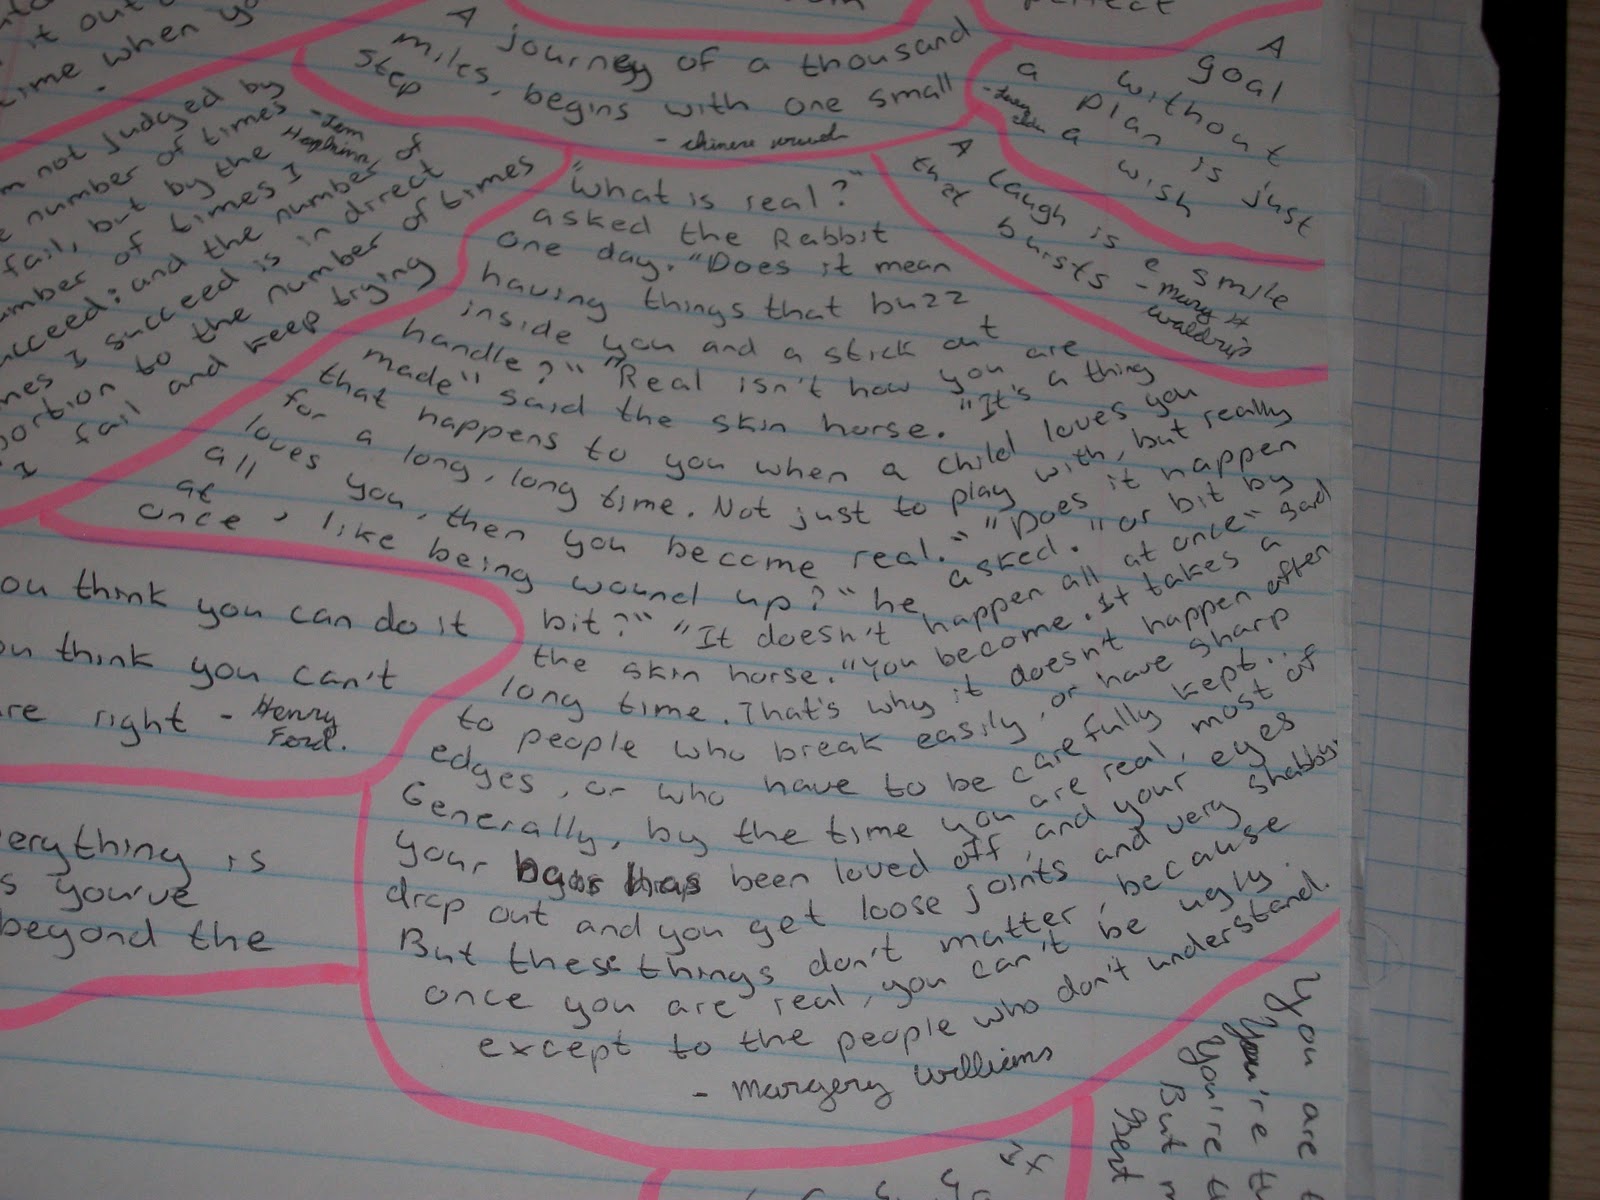 it out
time when yo
perfect
A journey of a thousand
miles, begins with one small
step
- chinese
A
goal
without
a plan is just
a wish
A laugh is a smile
that bursts - mary H
waldrip
not judged by
number of times
fail, but by the
number of times I
succeed: and the number of
times I succeed is in direct
portion to the number of times
I fail and keep trying
- Tom
Hopkins
"What is real?"
asked the Rabbit
one day. "Does it mean
having things that buzz
inside you and a stick out
handle?" "Real isn't how you are
made" said the skin horse. "It's a thing
that happens to you when a child loves you
for a long, long time. Not just to play with, but really
loves you, then you become real." "Does it happen
all at once, like being wound up?" he asked. "or bit by
bit?" "It doesn't happen all at once" said
the skin horse. "You become. It takes a
long time. That's why it doesn't happen after
to people who break easily, or have sharp
edges, or who have to be carefully kept..
Generally, by the time you are real, most of
your has been loved off, and your eyes
drop out and you get loose joints and very shabby.
But these things don't matter, because
once you are real, you can't be ugly.
except to the people who don't understand.
- Margery Williams
ou think you can do it
ou think you can't
re right - Henry
Ford.
erything is
s you've
beyond the
You are t
You're th
You're t
But m
Best